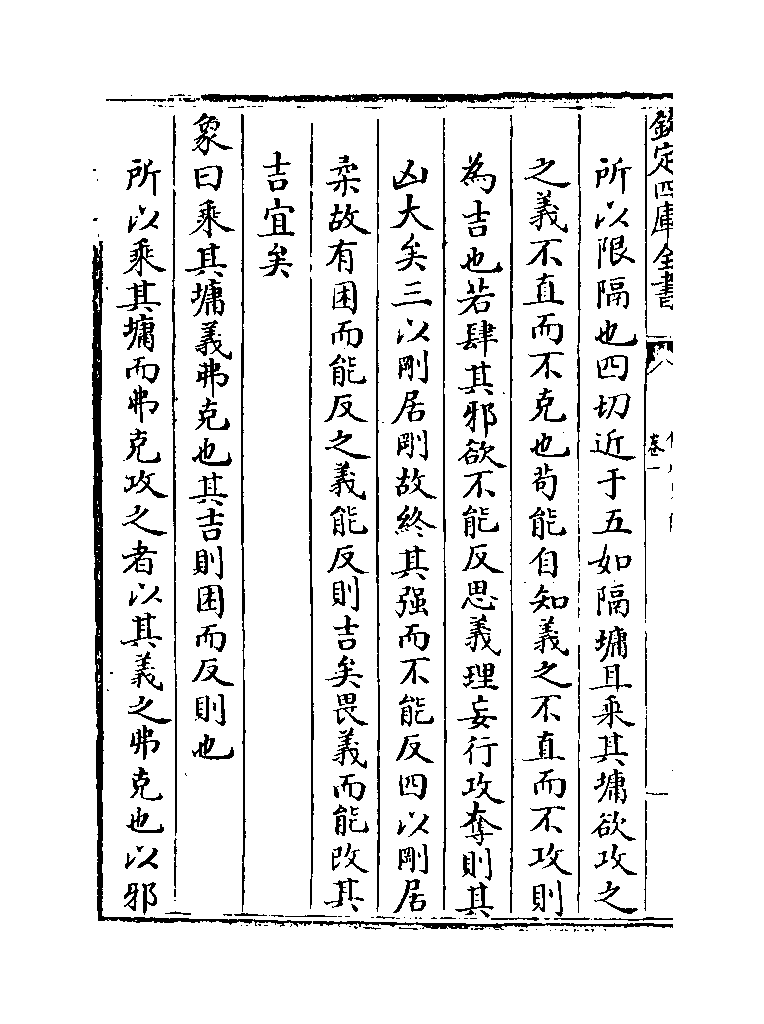 欽定四庫全書
卷一
所以限隔也四切近于五如隔墉且乘其墉欲攻之
之義不直而不克也苟能自知義之不直而不攻則
為吉也若肆其邪欲不能反思義理妄行攻奪則其
凶大矣三以剛居剛故終其强而不能反四以剛居
柔故有困而能反之義能反則吉矣畏義而能改其
吉宜矣
象曰乘其墉義弗克也其吉則困而反則也
所以乘其墉而弗克攻之者以其義之弗克也以邪